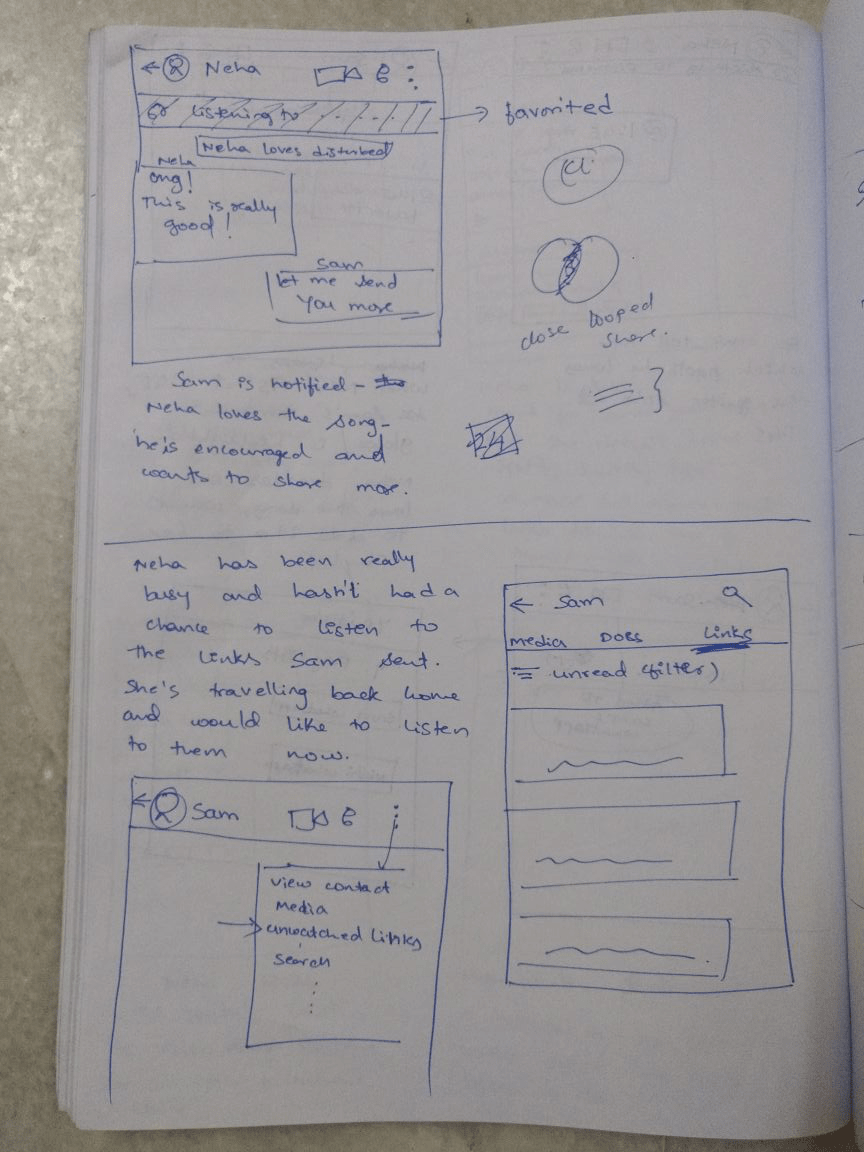 Neha
listening to
favorited
Neha loves disturbed
Neha
omg!
This is really
good!
Sam
let me send
You more
close looped
share.
Sam is notified -
Neha loves the song -
he is encouraged and
wants to share more.
Neha has been really
busy and hasn't had a
chance to listen to
the links Sam sent.
She's travelling back home
and would like to listen
to them now.
Sam
view contact
Media
unwatched links
search
Sam
media Docs Links
unread (filter)